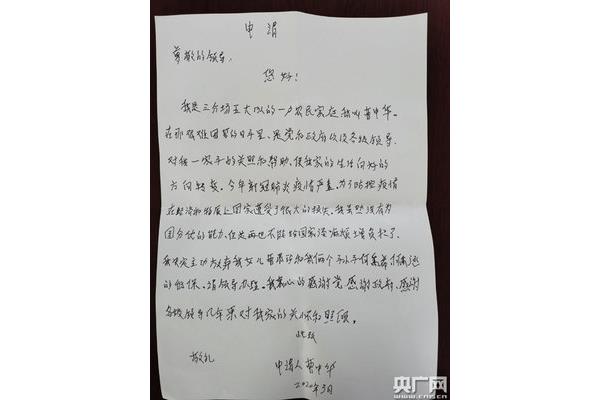 申请
尊敬的领导:
您好!
我是三分场五大队的一户农民家庭我叫曹中华。
在那艰难困苦的日子里、是党和政府以及各级领导
对我一家子的关照和帮助、使我家的生活向好的
方向转变。今年新冠肺炎疫情严重、为了防控疫情
在经济和物质上国家遭受了很大的损失、我虽然没有为
国分忧的能力、但是再也不能给国家添麻烦增负担了、
我决定主动放弃我女儿曹 和我俩个孙子何
的低保、请领导办理。我衷心的感谢党 感谢政府、感谢
各级领导几年来对我家的关怀和照顾。
此致
敬礼
申请人曹中华
2020年3月
央广网
www.cnr.cn